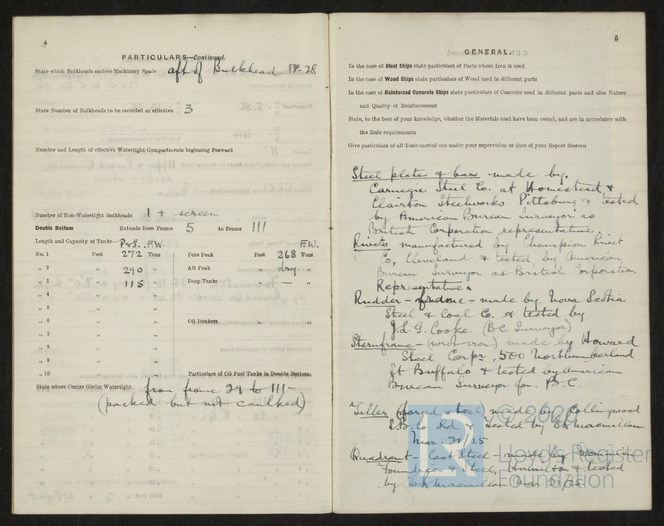 4
PARTICULARS—Continued.
State which Bulkheads enclose Machinery Space aft of Bulkhead No 28
State Number of Bulkheads to be recorded as effective 3
Number and Length of effective Watertight Compartments beginning Forward
Number of Non-Watertight Bulkheads 1 + screen
Double Bottom Extends from Frame 5 to Frame 111
Length and Capacity of Tanks— P&S. F.W. F.W.
No. 1 Feet 272 Tons Fore Peak Feet 268 Tons
„ 2 „ 290 „ Aft Peak „ dry „
„ 3 „ 115 „ Deep Tanks „ — „
„ 4 „ „ „ „
„ 5 „ „ „ „
„ 6 „ „ Oil Bunkers „ „
„ 7 „ „ „ „
„ 8 „ „ „ „
„ 9 „ „ „ „
„ 10 „ „ Particulars of Oil Fuel Tanks in Double Bottom.
State where Center Girder Watertight from frame 29 to 111-
(packed but not caulked)
5
GENERAL.
In the case of Steel Ships state particulars of Parts where Iron is used
In the case of Wood Ships state particulars of Wood used in different parts
In the case of Reinforced Concrete Ships state particulars of Concrete used in different parts and also Nature
and Quality of Reinforcement
State, to the best of your knowledge, whether the Materials used have been tested, and are in accordance with
the Rule requirements
Give particulars of all Tests carried out under your supervision or date of your Report thereon
Steel plates & bars made by.
Carnegie Steel Co. at Homestead &
Clairton Steelworks Pittsburg & tested
by American Bureau Surveyor is
British Corporation representative.
Rivets manufactured by Champion Rivet
Co, Cleveland & tested by American
Bureau Surveyor as British Corporation
Representative
Rudder-frame - made by Nova Scotia
Steel & Coal Co. & tested by
J.L.G. Cooke. (B.C. Surveyor)
Sternframe - (wrot-iron) made by Howard
Steel Corpn, 500 Northumberland
St Buffalo & tested by American
Bureau Surveyor for. B.C.
Tiller (forged steel) made by Collingwood
S.B. Co Ld & tested by
Mar 21/25
Quadrant - Cast Steel made by
Foundries & Steel, Hamilton & tested
by
© 2020
Lloyd's Register
Foundation